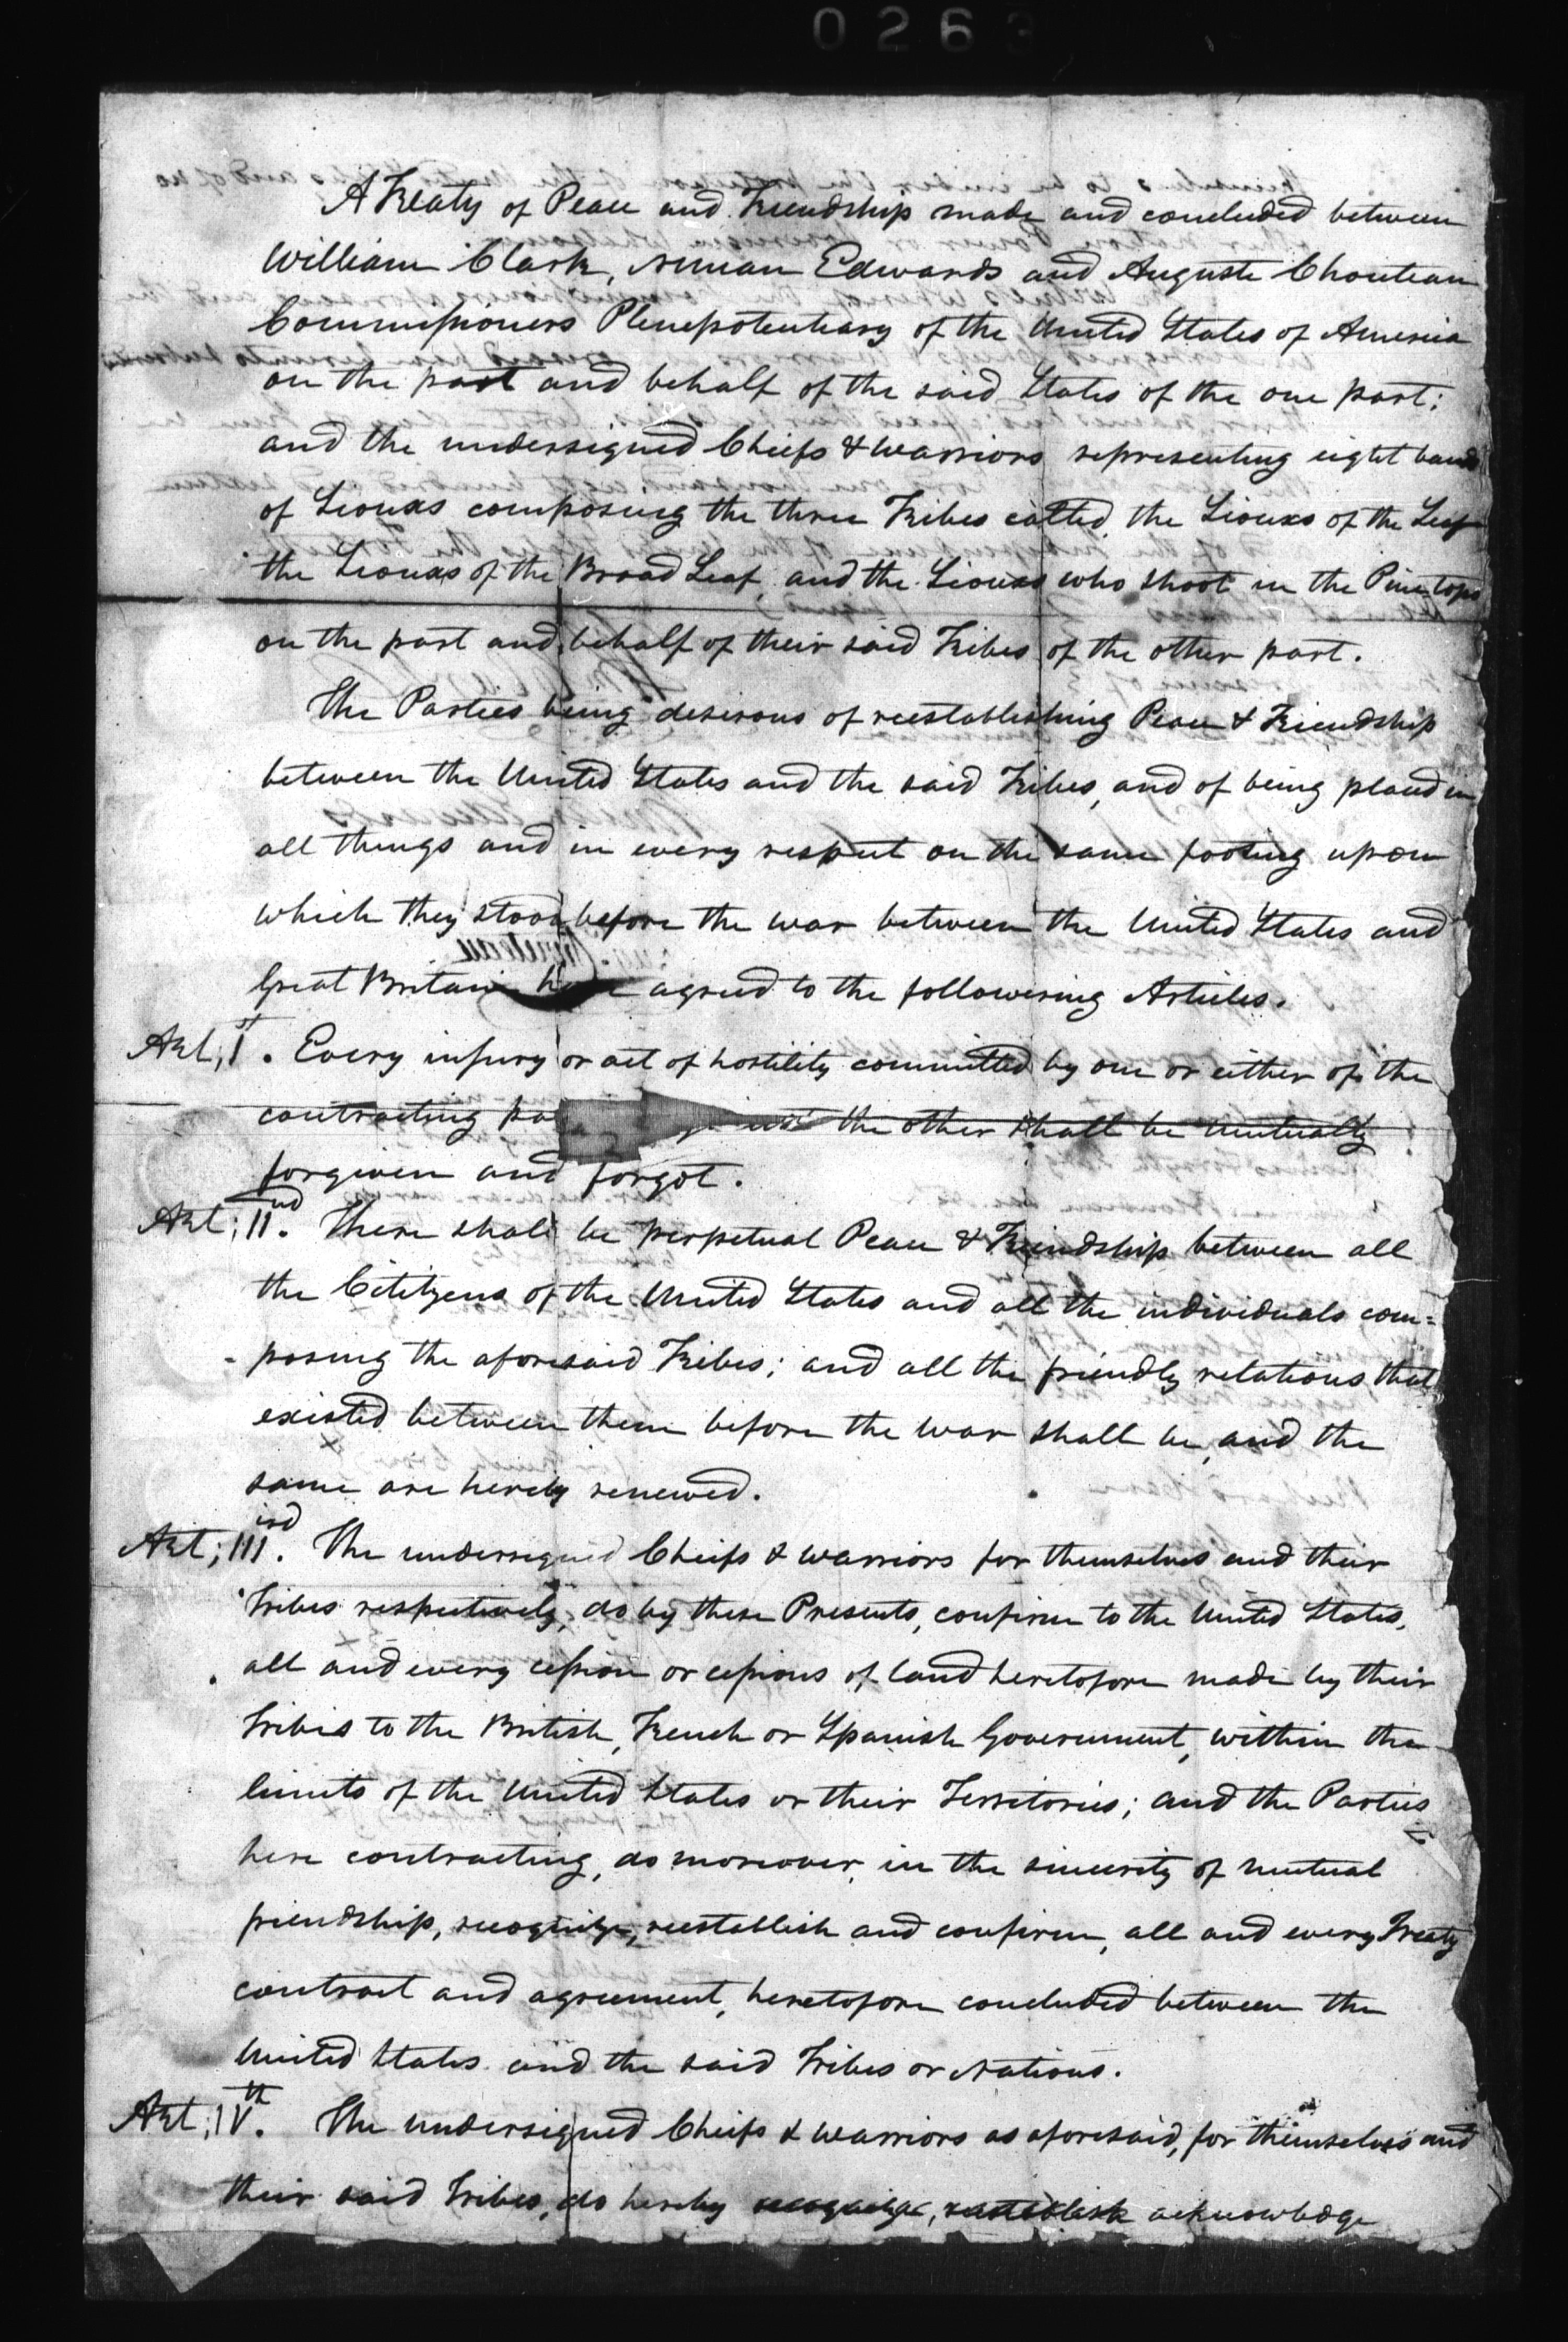 026
A Treaty of Peace and Friendship made and concluded between
William Clark, Ninian Edwards and Auguste Chouteau
Commissioners Plenepotentiary of the United States of America
on the part and behalf of the said States of the one part;
and the undersigned Chiefs & warriors representing eight bands
of Siouxs composing the three Tribes called the Siouxs of the Leaf
the Siouxs of the Broad Leaf, and the Siouxs who shoot in the Pine tops
on the part and behalf of their said Tribes of the other part.
The Parties being desirous of reestablishing Peace & Friendship
between the United States and the said Tribes, and of being placed in
all things and in every respect on the same footing upon
which they stood before the war between the United States and
Great Britain have agreed to the following Articles.
Art; Ist. Every injury or act of hostility committed by one or either of the
contracting pa the other shall be mutually
forgiven and forgot.
Art; IInd. There shall be perpetual Peace & Friendship between all
the Citityens of the United States and all the individuals com=
posing the aforesaid Tribes; and all the friendly relations that
existed between them before the war shall be, and the
same are hereby renewed.
Art; IIIrd. The undersigned Cheifs & warriors for themselves and their
Tribes respectively, do by these Presents, confirm to the United States,
all and every cession or cessions of land heretofore made by their
Tribes to the British, French or Spanish Government, within the
limits of the United States or their Territories; and the Parties
here contracting, do moreover, in the sincerity of mutual
friendship, recognize, reestablish and confirm, all and every Treaty
contract and agreement, heretofore concluded between the
United States and the said Tribes or Nations.
Art; IVth. The undersigned Cheifs & warriors as aforesaid, for themselves and
their said Tribes, do hereby recognize, reestablish acknowledge